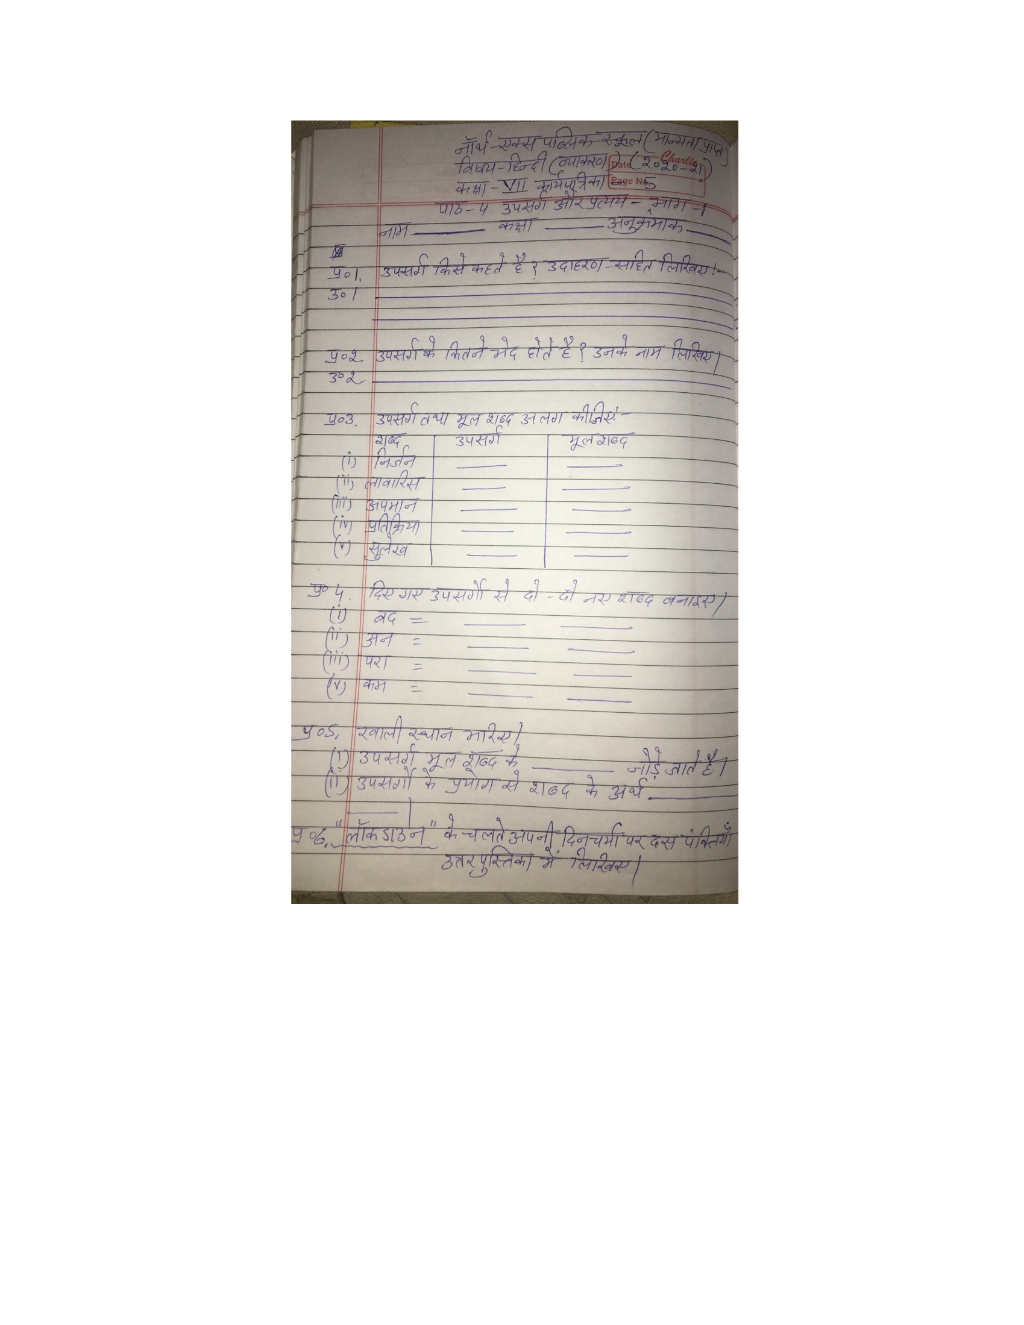 नॉर्थ-एक्स पब्लिक-स्कूल (मान्यता प्राप्त)
विषय-हिन्दी (व्याकरण) (2020-21)
Charlie
Date
कक्षा - VII कार्यपत्रिका - 5
Page No.
पाठ-4 उपसर्ग और प्रत्यय - भाग-1
नाम ______ कक्षा ______ अनुक्रमांक ______
प्र०1. उपसर्ग किसे कहते है? उदाहरण-सहित लिखिए:-
उ०1
प्र०२ उपसर्ग के कितने भेद होते है? उनके नाम लिखिए।
उ०२
प्र०3. उपसर्ग तथा मूल शब्द अलग कीजिए-
शब्द उपसर्ग मूल शब्द
(i) निर्जन ______ ______
(ii) लावारिस ______ ______
(iii) अपमान ______ ______
(iv) प्रतिक्रिया ______ ______
(v) सुलेख ______ ______
प्र० 4. दिए गए उपसर्गों से दो-दो नए शब्द बनाइए।
(i) बद = ______ ______
(ii) अन = ______ ______
(iii) परा = ______ ______
(iv) कम = ______ ______
प्र०5. खाली स्थान भरिए।
(i) उपसर्ग मूल शब्द के ______ जोड़े जाते है।
(ii) उपसर्गों के प्रयोग से शब्द के अर्थ ______
______।
प्र०6. "लॉकडाउन" के चलते अपनी दिनचर्या पर दस पंक्तियाँ
उत्तरपुस्तिका में लिखिए।